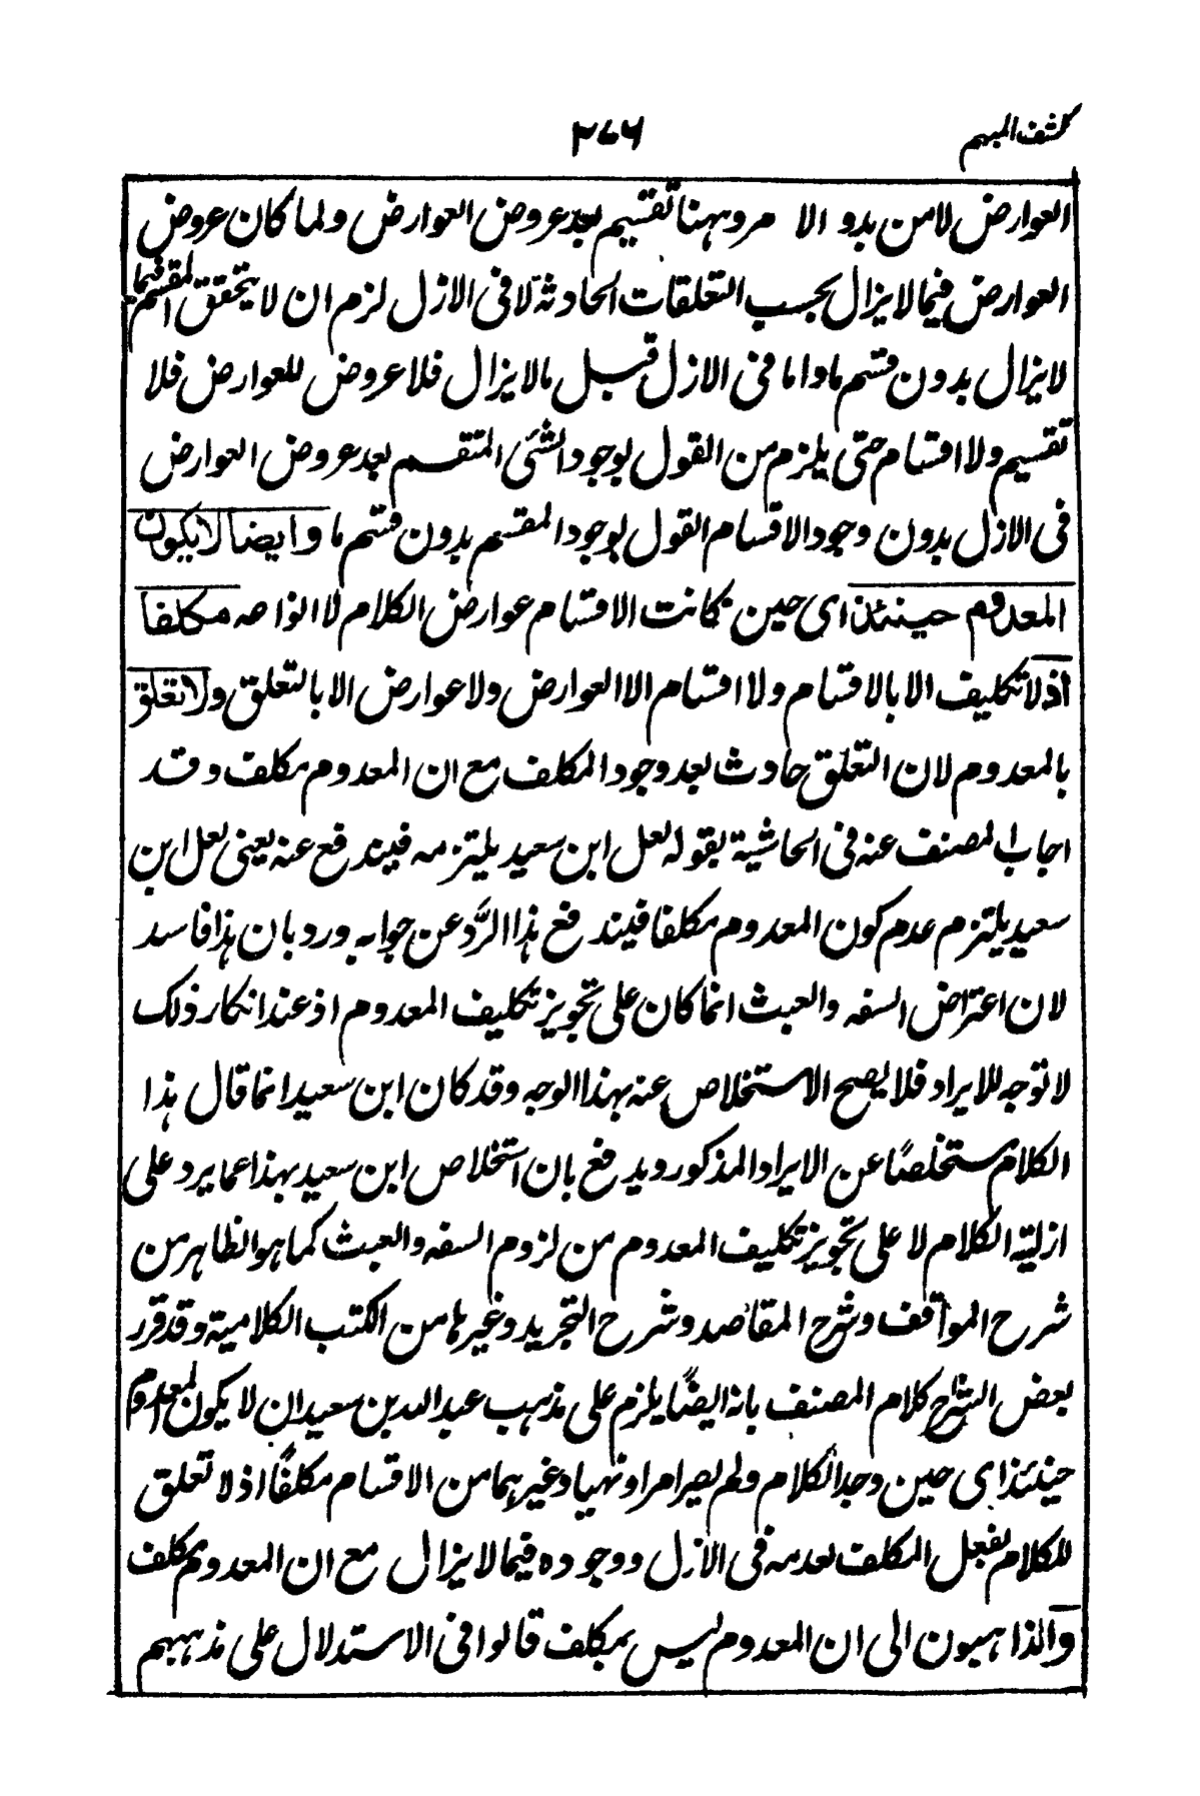 كشف المبهم
٢٧٦
العوارض لا من بدو الا مر وههنا تقسيم بعد عروض العوارض ولما كان عروض
العوارض فيما لا يزال بحسب التعلقات الحادثة لا فى الازل لزم ان لا يتحقق المقسم فيما
لا يزال بدون قسم ما واما فى الازل قبل ما لا يزال فلا عروض للعوارض فلا
تقسيم ولا اقسام حتى يلزم من القول بوجود الشئى المتقسم بعد عروض العوارض
فى الازل بدون وجود الاقسام القول بوجود المقسم بدون قسم ما وايضا لا يكون
المعدوم حينئذ اى حين كانت الاقسام عوارض الكلام لا انواعه مكلفا
اذ لا تكليف الا بالاقسام ولا اقسام الا العوارض ولا عوارض الا بالتعلق ولا تعلق
بالمعدوم لان التعلق حادث بعد وجود المكلف مع ان المعدوم مكلف وقد
اجاب المصنف عنه فى الحاشية بقوله لعل ابن سعيد يلتزمه فيندفع عنه يعنى لعل ابن
سعيد يلتزم عدم كون المعدوم مكلفا فيندفع هذا الرَّد عن جوابه ورد بان هذا فاسد
لان اعتراض السفه والعبث انما كان على تجويز تكليف المعدوم اذ عند انكار ذلك
لا توجه للايراد فلا يصح الاستخلاص عنه بهذا الوجه وقد كان ابن سعيد انما قال هذا
الكلام مستخلصًا عن الايراد المذكور ويدفع بان استخلاص ابن سعيد بهذا عما يرد على
ازلية الكلام لا على تجويز تكليف المعدوم من لزوم السفه والعبث كما هو الظاهر من
شرح المواقف وشرح المقاصد وشرح التجريد وغيرها من الكتب الكلامية وقد قرر
بعض الشراح كلام المصنف بانه ايضًا يلزم على مذهب عبدالله بن سعيد ان لا يكون المعدوم
حينئذ اى حين وجد الكلام ولم يصر امرا ونهيا وغيرهما من الاقسام مكلفًا اذ لا تعلق
للكلام بفعل المكلف لعدمه فى الازل ووجوده فيما لا يزال مع ان المعدوم مكلف
والذاهبون الى ان المعدوم ليس بمكلف قالوا فى الاستدلال على مذهبهم